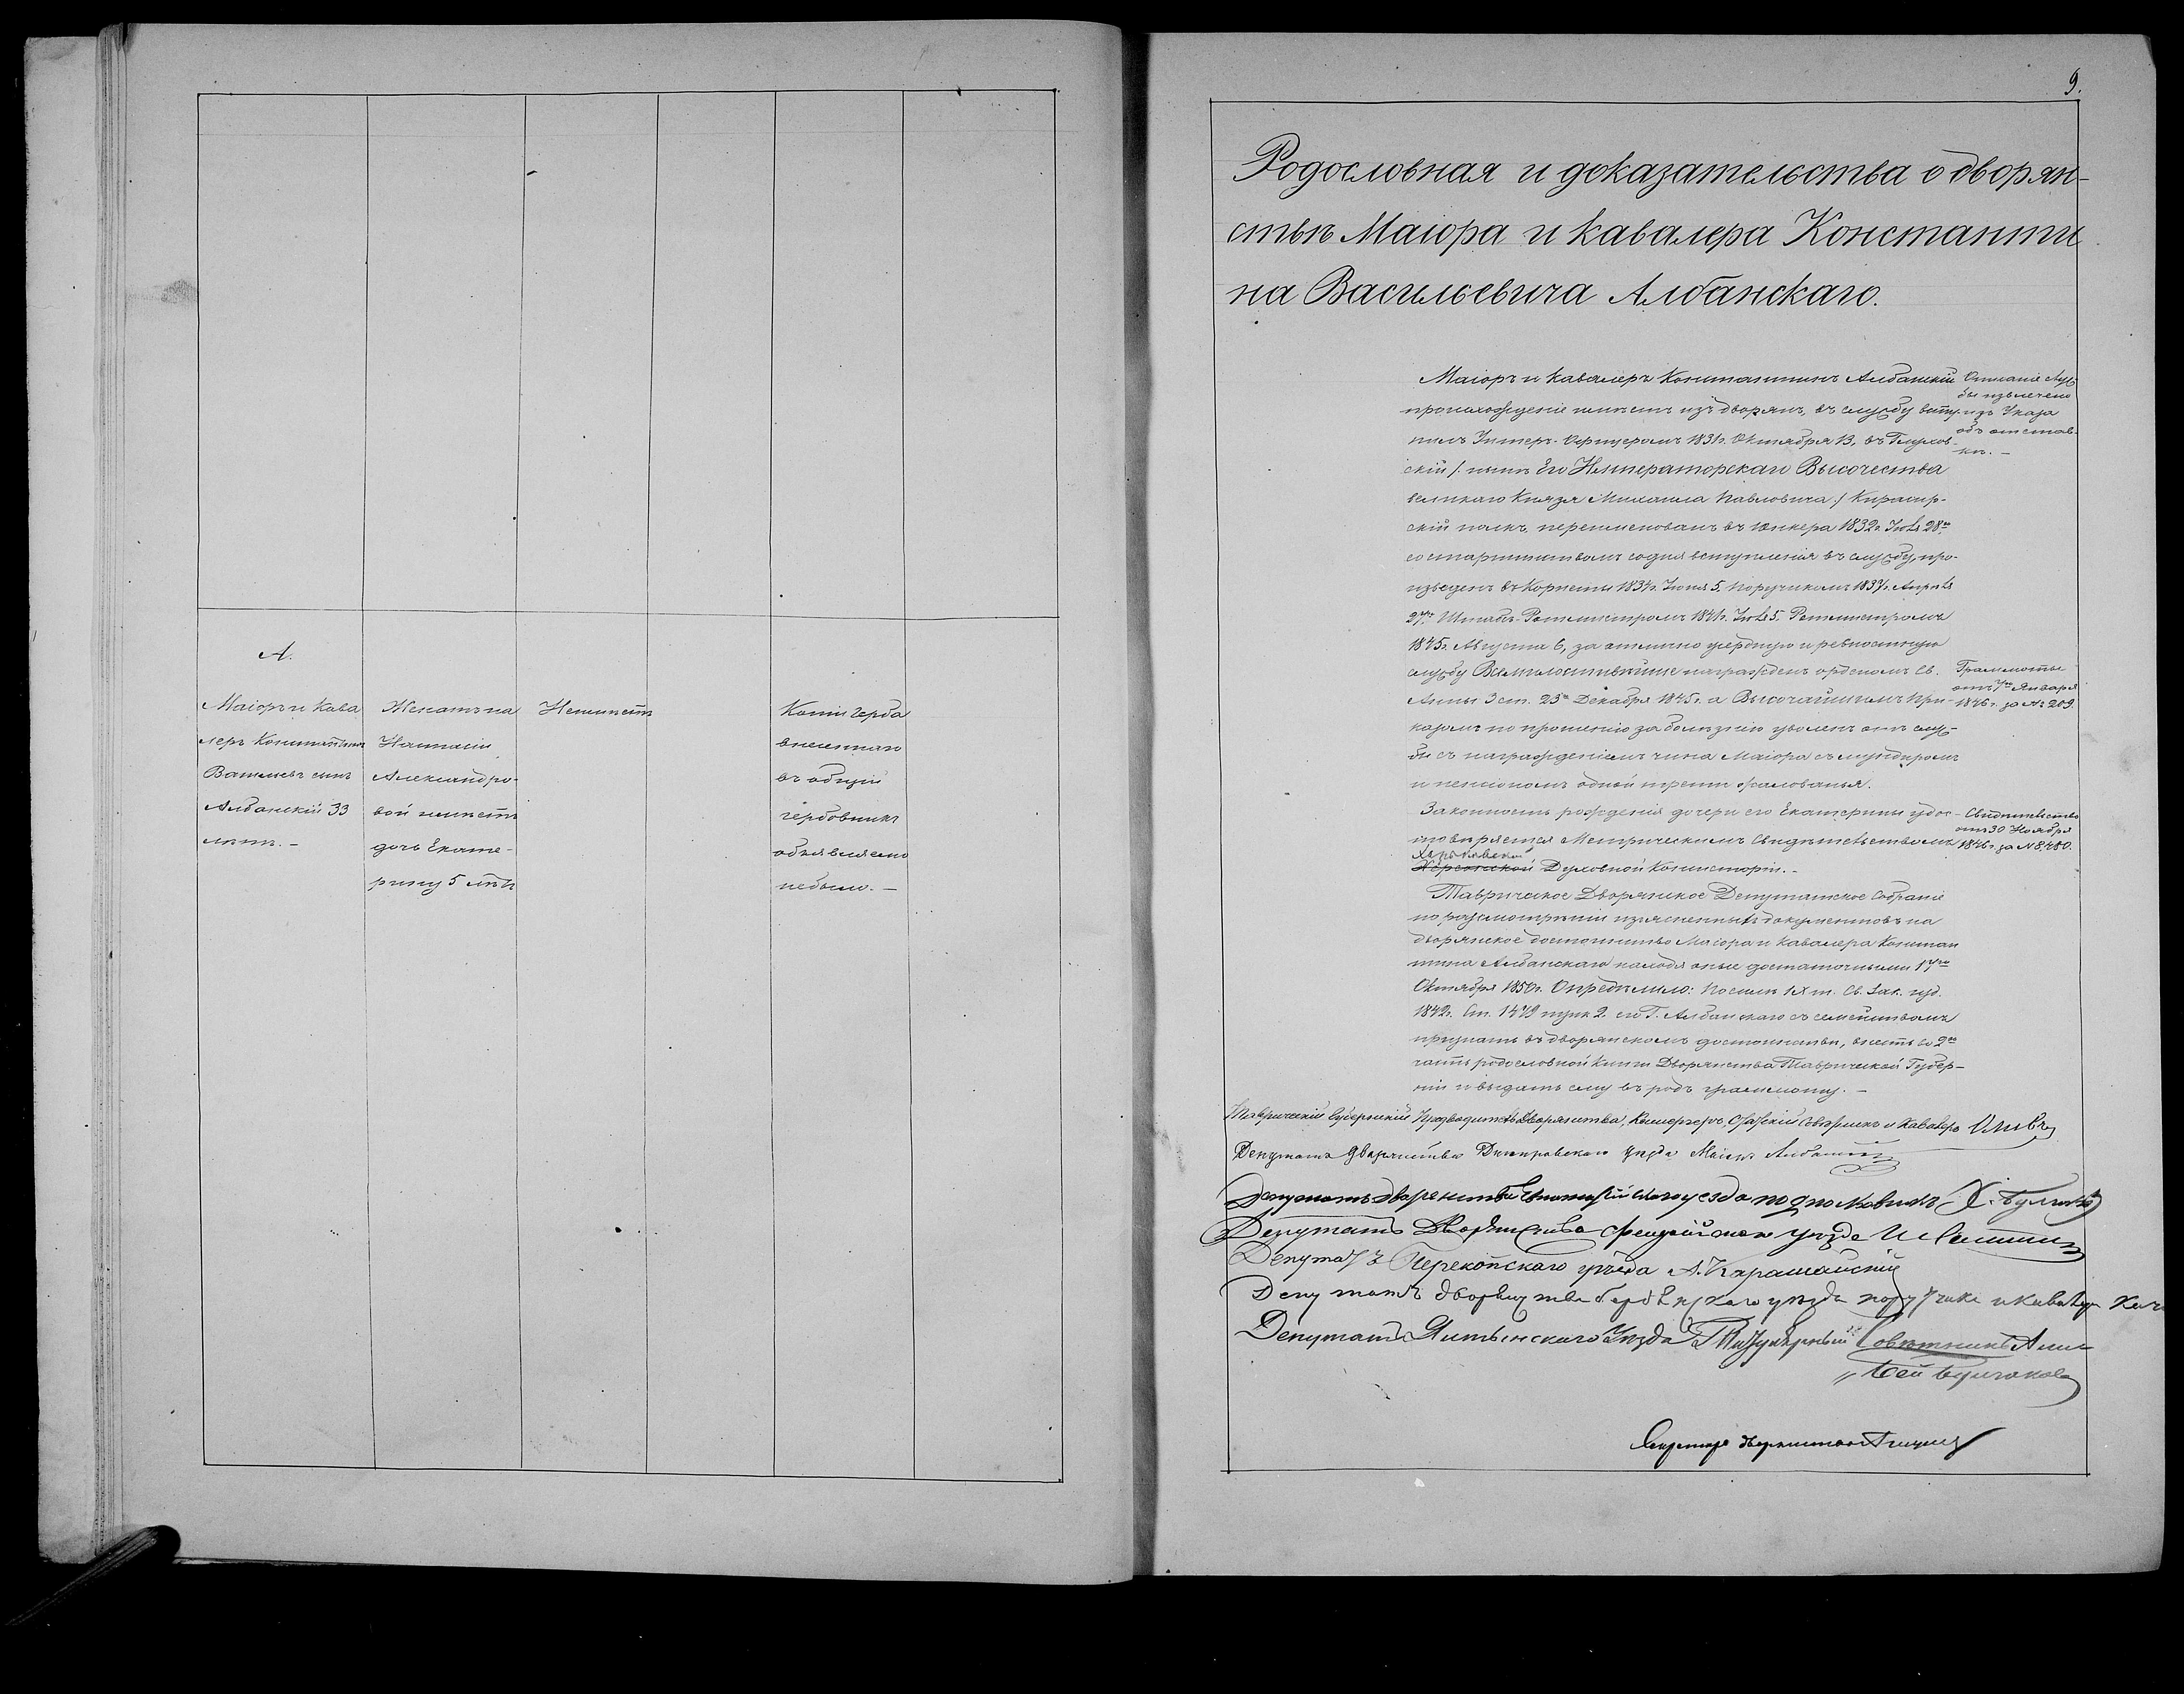 А.
Маіоръ и Кава
леръ Константинъ
Васильевъ сынъ
Албанскій 33
лѣтъ. –
Женатъ на
Наталіи
Александро-
вой имѣетъ
дочь Екате-
рину 5 лѣтъ
Неимѣетъ
Копіи герба
внесеннаго
въ общій
гербовникъ
объявляемо
небыло. –
9.
Родословная и доказательства о дворян-
ствѣ Маіора и кавалера Константи
на Васильевича Албанскаго.
Маіоръ и Кавалеръ Константинъ Албанскій
происхожденіе имѣетъ изъ дворянъ, въ службу всту-
пилъ Унтеръ-Офицеромъ 1831г. Октября 13, въ Глухов-
скій /: нынѣ Его Императорскаго Высочества
великаго Князя Михаила Павловича :/ Кирасир-
скій полкъ, переименованъ въ Юнкера 1832г. 28го
со старшинствомъ содня вступленія въ службу, про-
изведенъ въ Корнеты 1834г. Іюня 5, Поручикомъ 1837г. Апрѣля
27го Штабъ-Ротмистромъ 1841г. 5, Ротмистромъ
1845г. Августа 6, за отлично усердную и ревностную
службу Всемилостивѣйше награжденъ орденомъ Св.
Анны 3 ст. 23го Декабря 1845г. а Высочайшимъ При-
казомъ по прошенію за болѣзнію уволенъ отъ служ-
бы съ награжденіемъ чина Маіора съ мундиромъ
и пенсіономъ одной трети жалованья.
Описаніе служ
бы извлечено
изъ Указа
объ отстав-
кѣ. –
Граммоты
отъ 7го Января
1846г. за № 209.
Законность рожденія дочери его Екатерины удос-
товѣряется Метрическимъ Свидѣтельствомъ
Харьковской
Херсонской Духовной Консисторіи. –
Свидѣтельство
отъ 30 Ноября
1846г. за № 8,480.
Таврическое Дворянское Депутатское Собраніе
по разсмотрѣніи изъясненныхъ документовъ на
дворянское достоинство Маіора и Кавалера Констан
тина Албанскаго находя оные достаточными 17го
Октября 1850г. Опредѣлило: По силѣ IX т. Св. Зак. изд.
1842г. Ст. 1479 пунк 2. его Г. Албанскаго съ семействомъ
признать въ дворянскомъ достоинствѣ, внесть во 2ю
часть родословной книги Дворянства Таврической Губер-
ніи и выдать ему въ родъ граммоту. –
Таврическій Губернскій Предводитель Дворянства, Камергеръ, Статскій Совѣтникъ и Кавалеръ Оливъ
Депутатъ Дворянства Днепровскаго уезда Маіоръ Албанскій
Депутатъ дворенства Евпаторійскаго уезда подполковникъ
Депутатъ Дворянства Феодосійскаго уѣзда
Депутатъ Перекопскаго уѣзда А. Карашайскій
Депутатъ дворянства бердянскаго уѣзда поручикъ и кавалеръ
Депутатъ Ялтынскаго Уѣзда Титулярный Совѣтникъ Али
Бей Булгаковъ
Секретарь дворянства